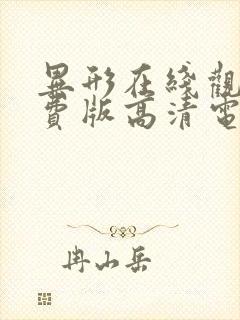 異形在綫觀
費版高清電
冉山岳